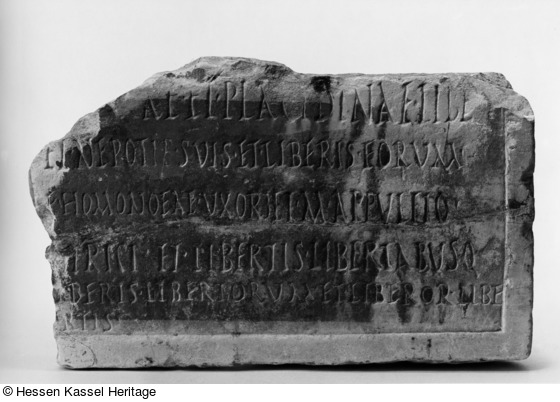 PLACIDINAE
NEPOTI SVIS·ET LIBERIS·EORVM
HOMONOEAE VXORI ET M APPVLEIO
ET·LIBERTIS·LIBERTABVSQ
BERIS·LIBERTORVM·ET LIBEROR LIBE
RTIS
© Hessen Kassel Heritage